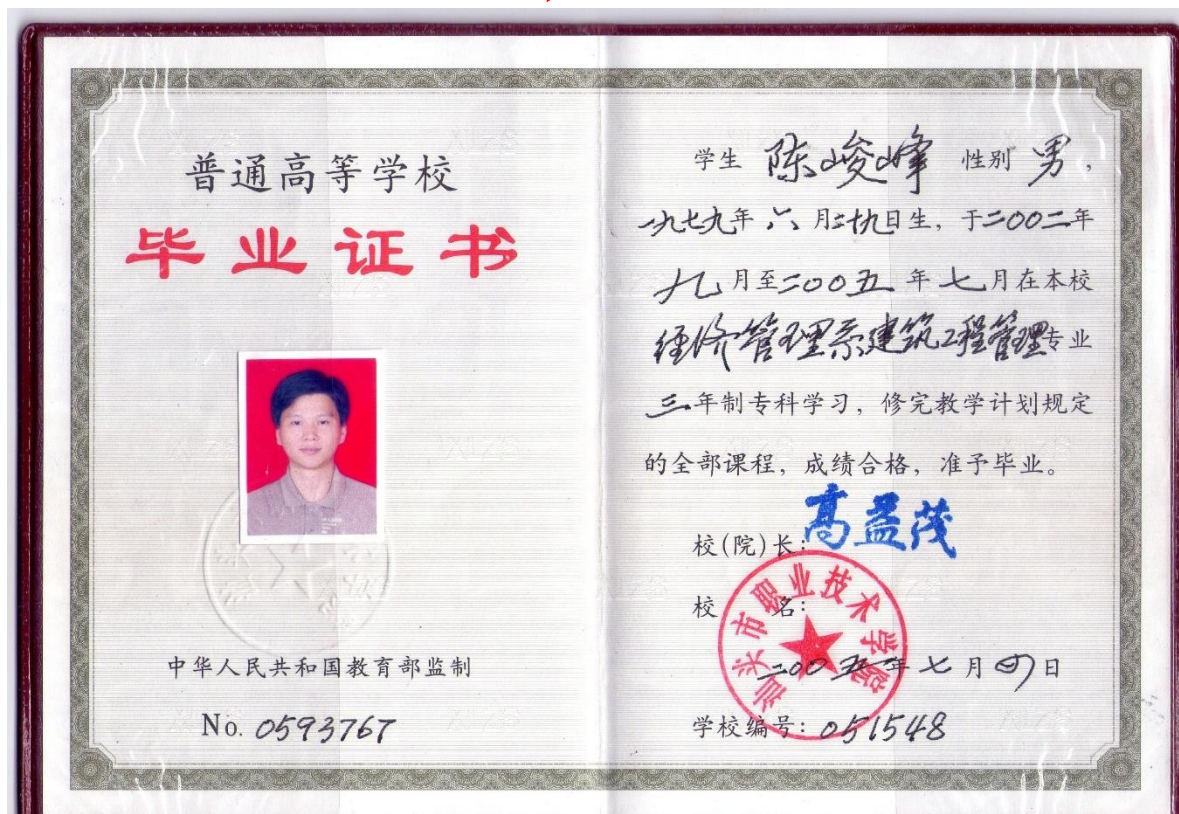 普通高等学校
毕业证书
中华人民共和国教育部监制
No. 0593767
学生 陈峻峰 性别 男,
一九七九年 六 月二十九日生, 于二00二年
九月至二00五年七月在本校
经济管理系建筑工程管理专业
三年制专科学习, 修完教学计划规定
的全部课程, 成绩合格, 准予毕业。
校(院)长: 高益茂
校 名:
汕头市职业技术学院
二00五年七月四日
学校编号: 051548